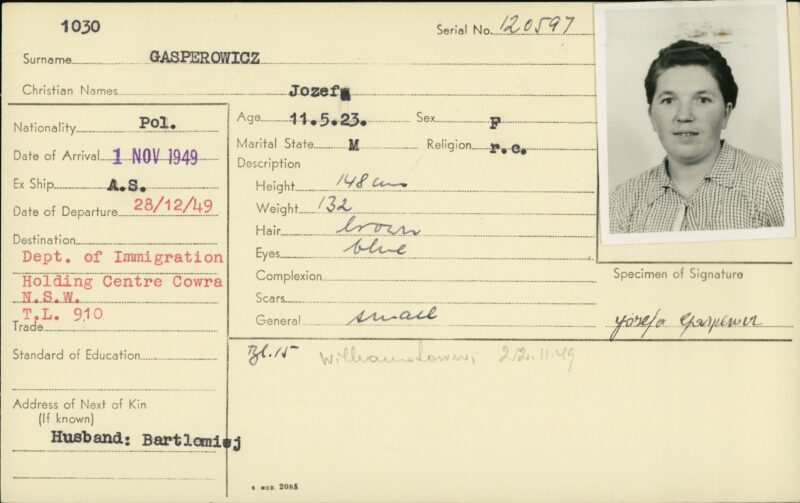 1030
Serial No. 120597
Surname GASPEROWICZ
Christian Names Jozefa
Nationality Pol.
Date of Arrival 1 NOV 1949
Ex Ship A.S.
Date of Departure 28/12/49
Destination
Dept. of Immigration
Holding Centre Cowra
N.S.W.
T.L. 910
Trade
Standard of Education
Address of Next of Kin
(If known)
Husband: Bartlomiej
Age 11.5.23. Sex F
Marital State M Religion r.c.
Description
Height 148 cm
Weight 132
Hair brown
Eyes blue
Complexion
Scars
General small
Specimen of Signature
Józefa
Bl. 15 Williamstown, 22.11.49
S MCD. 2085